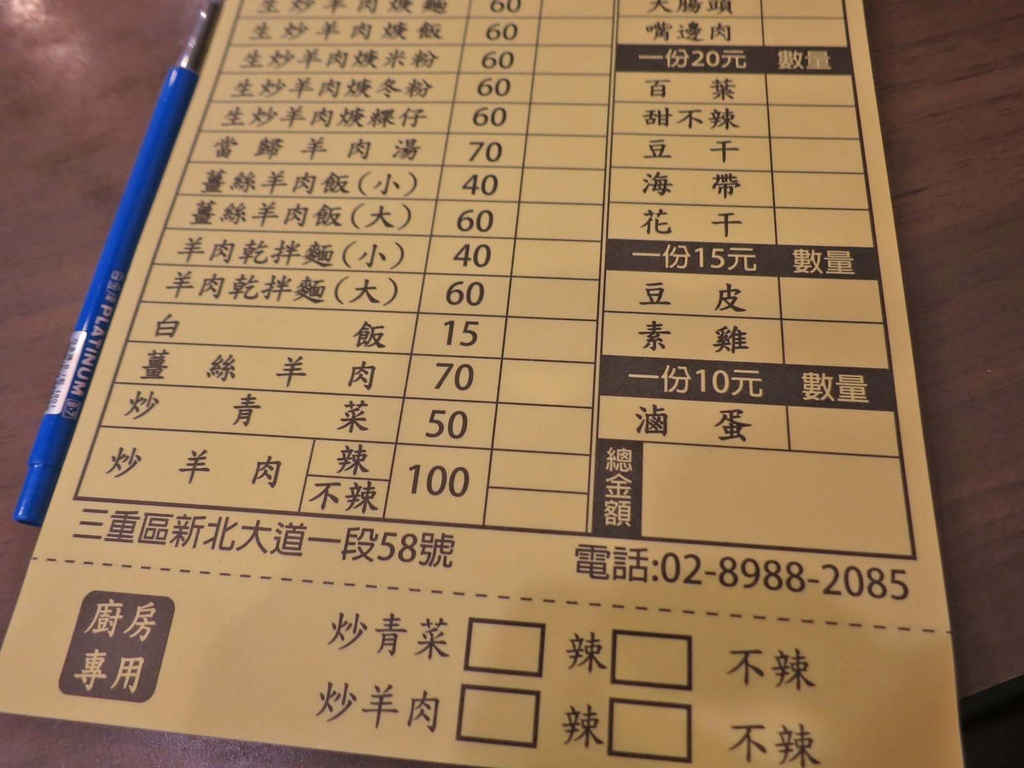 生炒羊肉焿麵 60
生炒羊肉焿飯 60
生炒羊肉焿米粉 60
生炒羊肉焿冬粉 60
生炒羊肉焿粿仔 60
當歸羊肉湯 70
薑絲羊肉飯(小) 40
薑絲羊肉飯(大) 60
羊肉乾拌麵(小) 40
羊肉乾拌麵(大) 60
白飯 15
薑絲羊肉 70
炒青菜 50
炒羊肉 辣 不辣 100
大腸頭
嘴邊肉
一份20元 數量
百葉
甜不辣
豆干
海帶
花干
一份15元 數量
豆皮
素雞
一份10元 數量
滷蛋
總金額
三重區新北大道一段58號
電話:02-8988-2085
廚房專用
炒青菜 辣 不辣
炒羊肉 辣 不辣
PLATINUM